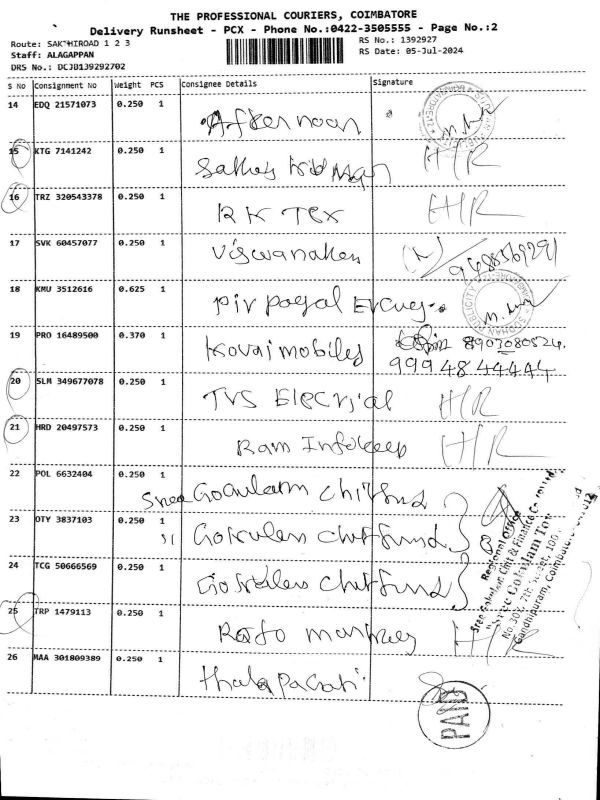 THE PROFESSIONAL COURIERS, COIMBATORE
Delivery Runsheet - PCX - Phone No.:0422-3505555 - Page No.:2
Route: SAKTHIROAD 1 2 3
RS No.: 1392927
Staff: ALAGAPPAN
RS Date: 05-Jul-2024
DRS No.: DCJB139292702
S No Consignment No Weight PCS Consignee Details Signature
14 EDQ 21571073 0.250 1 Afternoon
15 KTG 7141242 0.250 1 H/R
16 TRZ 320543378 0.250 1 RK Tex H/R
17 SVK 60457077 0.250 1
18 KMU 3512616 0.625 1
19 PRO 16489500 0.370 1 Kovai mobiles 8907080524
99948 44444
20 SLM 349677078 0.250 1 TVS Elecrial H/R
21 HRD 20497573 0.250 1 Ram H/R
22 POL 6632404 0.250 1 Sree Goculam chitfund
23 OTY 3837103 0.250 1 Gokulen chitfund
24 TCG 50666569 0.250 1 chitfund
25 TRP 1479113 0.250 1 H/R
26 MAA 301809389 0.250 1
Regional Office
Sree Gokulam Chit & Finance Co
"Sree Gokulam Tow
Gandhipuram, Coimbatore
PAID